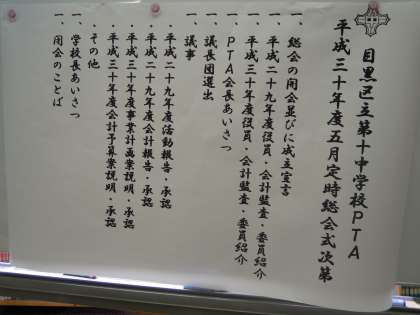 目黒区立第十中学校PTA
平成三十年度五月定時総会式次第
一、総会の開会並びに成立宣言
一、平成二十九年度役員・会計監査・委員紹介
一、平成三十年度役員・会計監査・委員紹介
一、PTA会長あいさつ
一、議長団選出
一、議事
・平成二十九年度活動報告・承認
・平成二十九年度会計報告・承認
・平成三十年度事業計画案説明・承認
・平成三十年度会計予算案説明・承認
一、その他
一、学校長あいさつ
一、閉会のことば